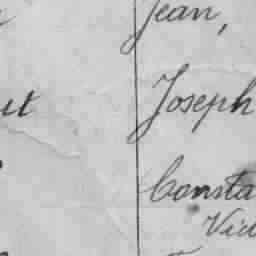 Jean,
ut Joseph
Consta
Vic